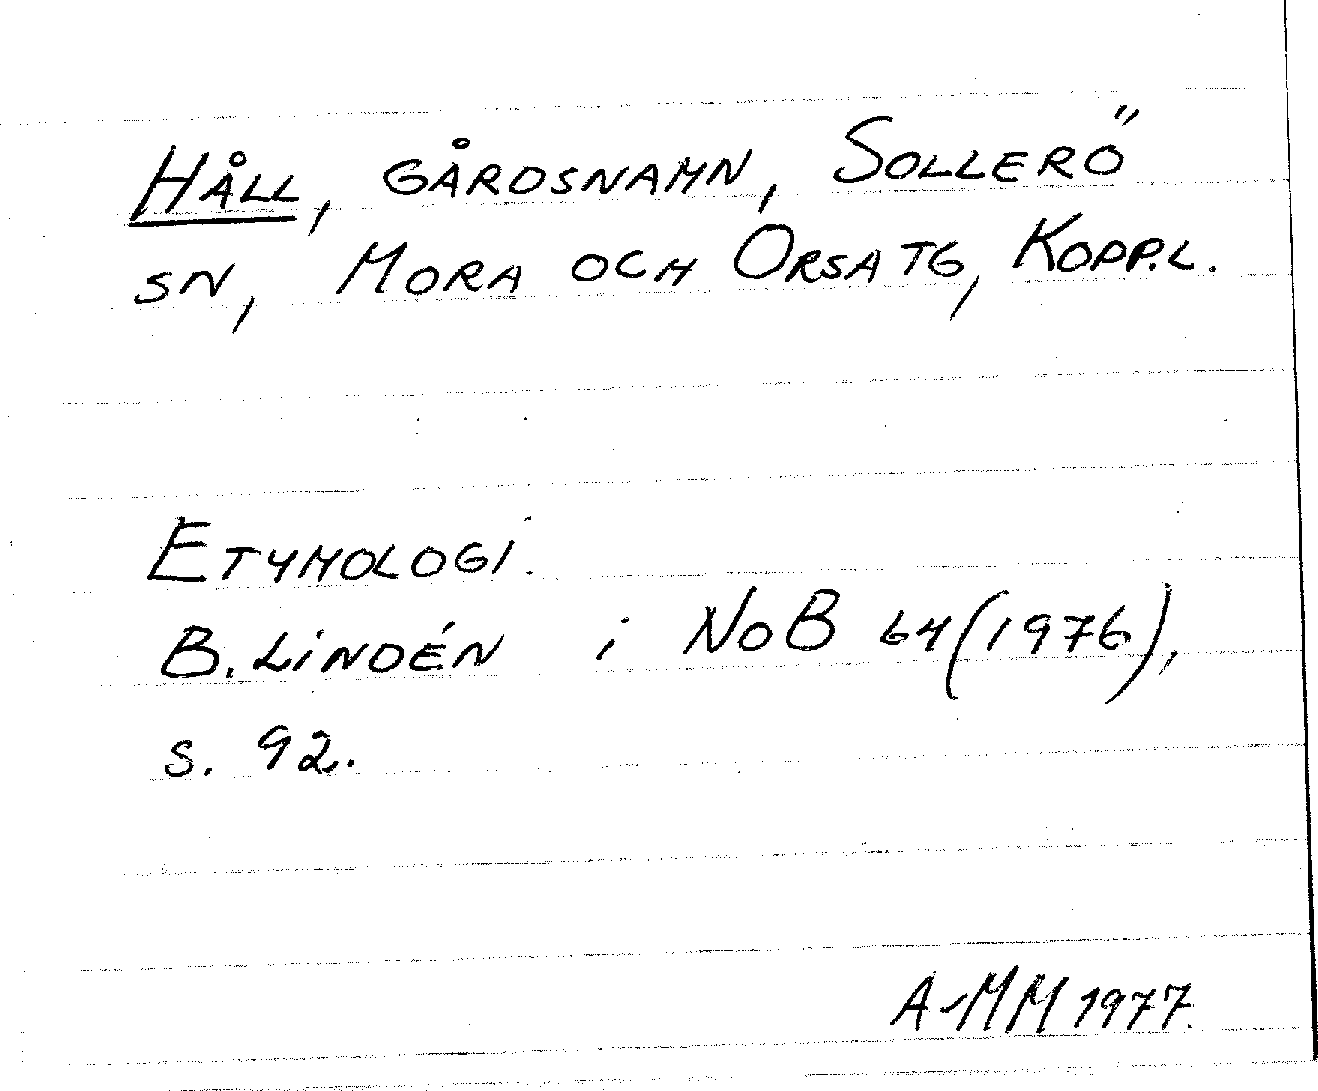 HÅLL, GÅRDSNAMN, SOLLERÖ
SN, MORA OCH ORSA TG, KOPP.L.
ETYMOLOGI.
B. LINDÉN i NoB 64 (1976),
s. 92.
A-MM 1977.